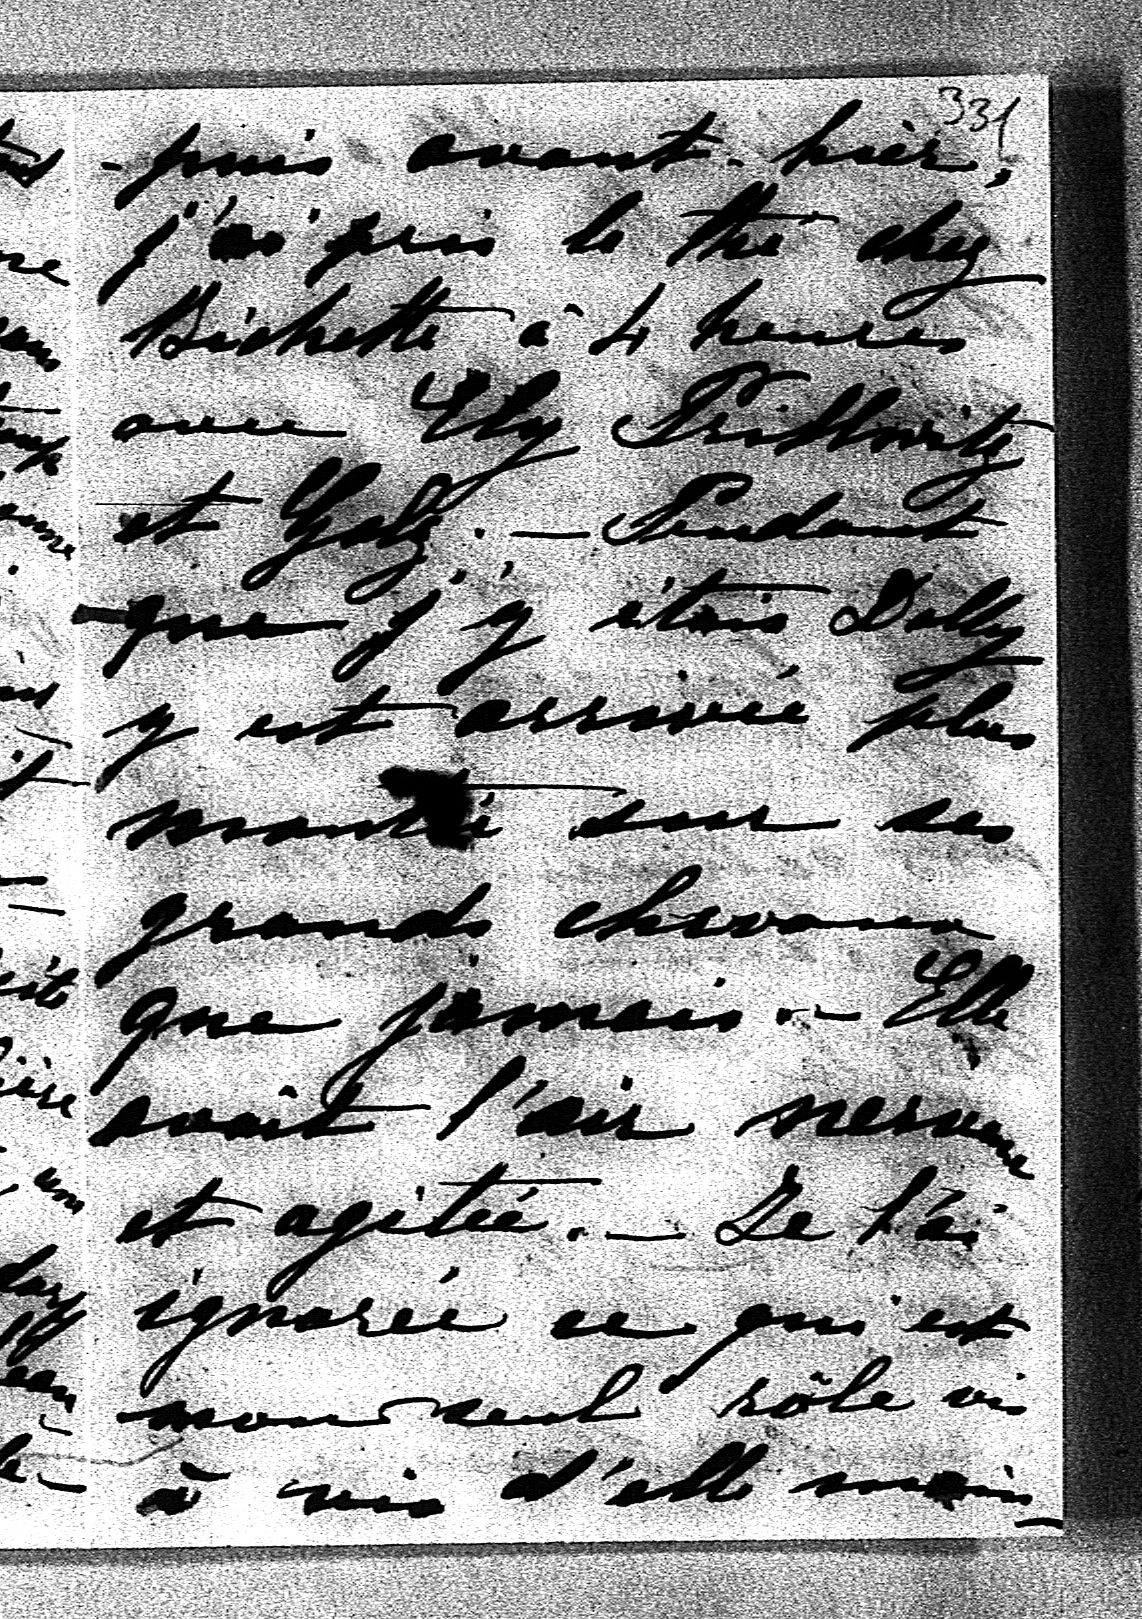 331
- puis avant-hier,
j'ai pris le thé chez
Bichette à 4 heures
avec Ely
et . — Pendant
que j'y étais Dolly
y est arrivée plus
montée sur ses
grands chevaux
que jamais. — Elle
avait l'air nerveuse
et agitée. — Je l'ai
ignorée ce qui est
mon seul rôle vis
à vis d'elle mais